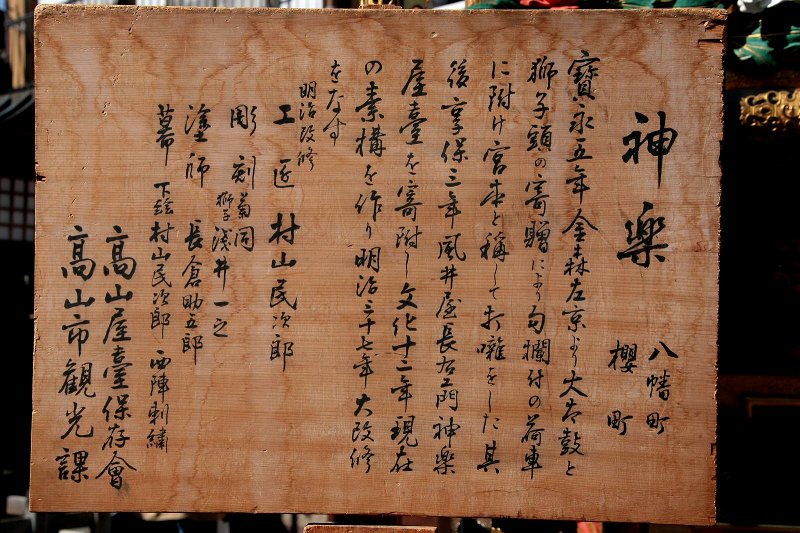 神楽
八幡町
櫻町
寶永五年金森左京より大太鼓と
獅子頭の寄贈により勾欄付の荷車
に附け宮本と称して打囃をした其
後享保三年風井屋長右エ門神楽
屋臺を寄附し文化十二年現在
の素構を作り明治三十七年大改修
をなす
明治改修
工匠 村山民次郎
彫刻 菊同
獅子 浅井一之
塗師 長倉助五郎
幕 下絵村山民次郎 西陣刺繍
高山屋臺保存會
高山市観光課